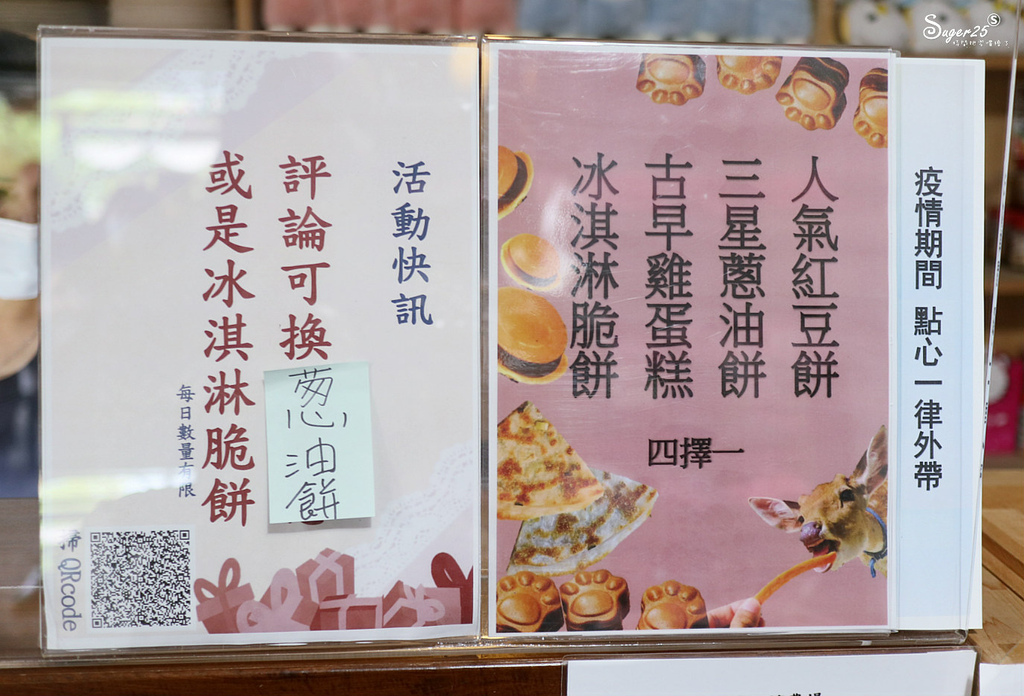 活動快訊
評論可換
葱油餅
或是冰淇淋脆餅
每日數量有限
掃 QRcode
人氣紅豆餅
三星蔥油餅
古早雞蛋糕
冰淇淋脆餅
四擇一
疫情期間 點心一律外帶
Suger25